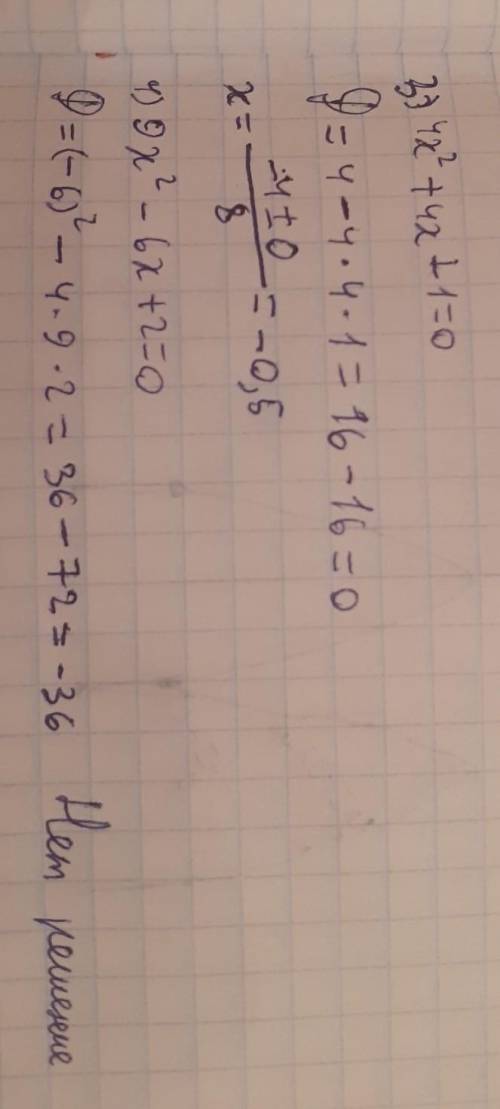 3) 4x² + 4x + 1 = 0
D = 4 - 4 · 4 · 1 = 16 - 16 = 0
x = (-4 ± 0) / 8 = -0,5
4) 9x² - 6x + 2 = 0
D = (-6)² - 4 · 9 · 2 = 36 - 72 = -36 Нет решение